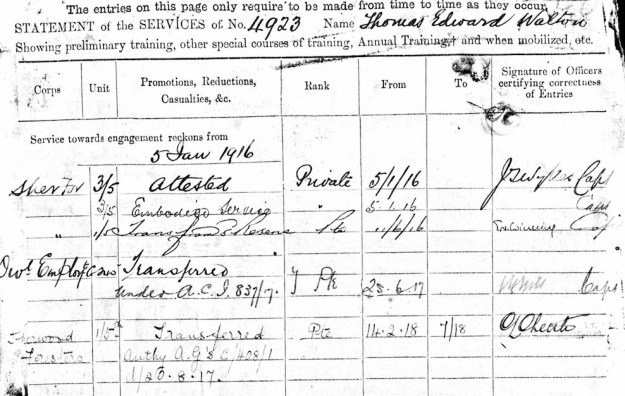 The entries on this page only require to be made from time to time as they occur.
STATEMENT of the SERVICES of No. 4923 Name Thomas Edward Walton
Showing preliminary training, other special courses of training, Annual Training, and when mobilized, etc.
Corps Unit Promotions, Reductions, Casualties, &c. Rank From To Signature of Officers certifying correctness of Entries
Service towards engagement reckons from
5 Jan 1916
Sher For 3/5 Attested Private 5/1/16 Capt
3/5 Embodied Service " 5.1.16 Capt
" Pte /6/16
Transferred
under A.C.I. 837/17. Pte 23.6.17 Capt
Sherwood 1/5th Transferred Pte 14.2.18 7/18
Foresters Authy A.G's C/408/1
d/23.8.17.